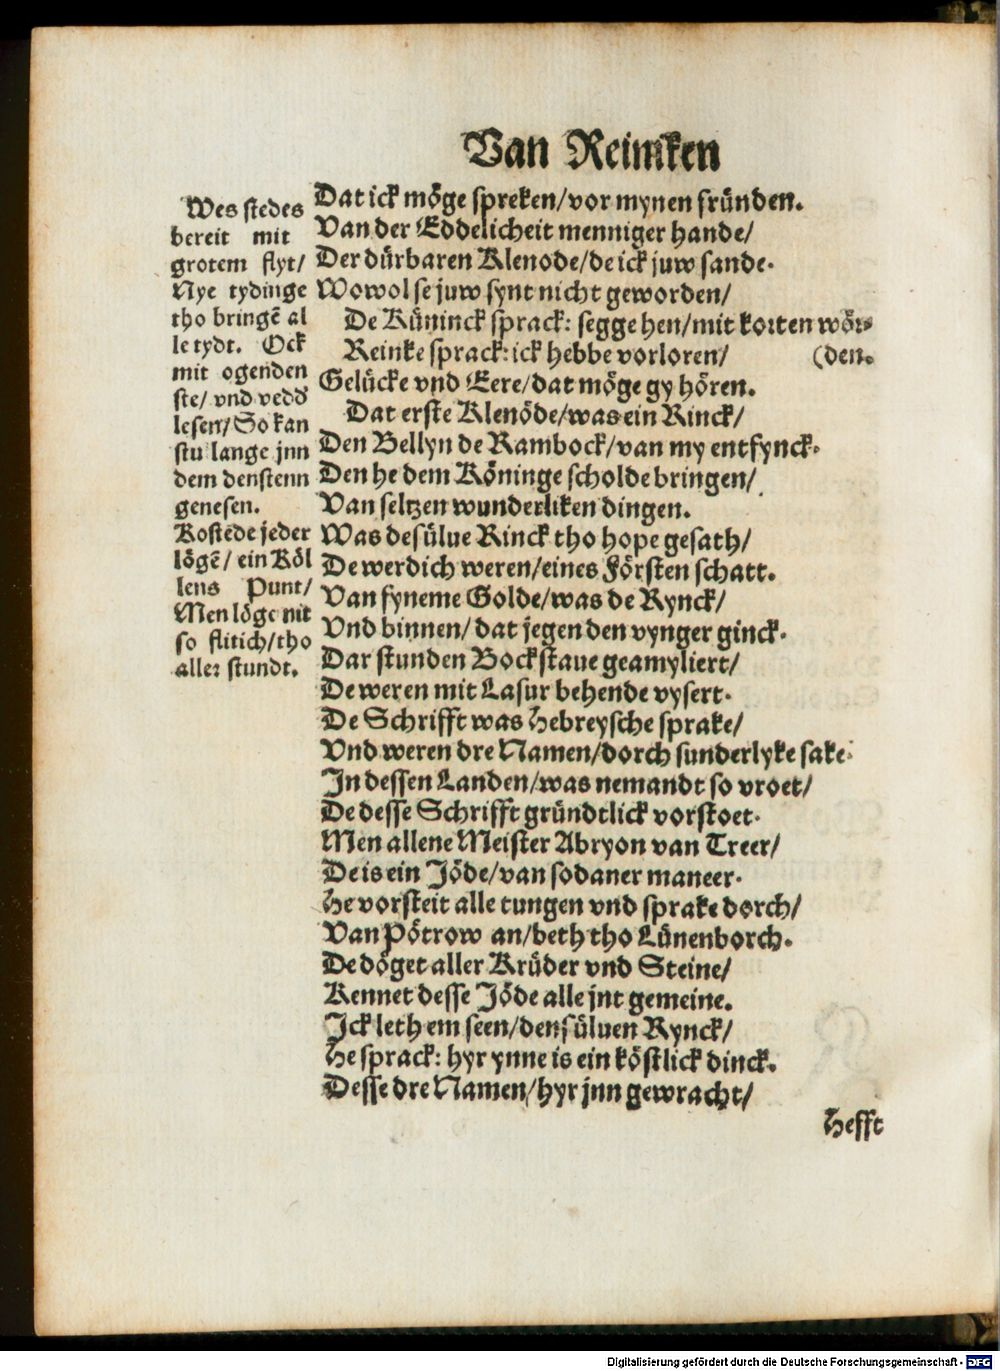 Van Reimken
Wes stedes
bereit mit
grotem flyt/
Nye tydinge
tho bringē al
le tydt. Ock
mit ogenden
ste/ vnd vedd
lesen/ So kan
stu lange jnn
dem denstenn
genesen.
Kostede jeder
lögē/ ein Köl
lens Punt/
Men löge nit
so flitich/tho
aller stundt.
Dat ick möge spreken/vor mynen fründen.
Van der Eddelicheit menniger hande/
Der dürbaren Klenode/de ick juw sande.
Wowol se juw synt nicht geworden/
De Küninck sprack: segge hen/mit korten wör-
Reinke sprack: ick hebbe vorloren/ (den.
Gelücke vnd Eere/dat möge gy hören.
Dat erste Klenöde/was ein Rinck/
Den Bellyn de Rambock/van my entfynck.
Den he dem Köninge scholde bringen/
Van seltzen wunderliken dingen.
Was desülue Rinck tho hope gesath/
De werdich weren/eines Försten schatt.
Van fyneme Golde/was de Rynck/
Vnd binnen/ dat jegen den vynger ginck.
Dar stunden Bockstaue geamyliert/
De weren mit Lasur behende vysert.
De Schrifft was Hebreysche sprake/
Vnd weren dre Namen/dorch sunderlyke sake.
In dessen Landen/was nemandt so vroet/
De desse Schrifft gründtlick vorstoet.
Men allene Meister Abryon van Treer/
De is ein Jöde/van sodaner maneer.
He vorsteit alle tungen vnd sprake dorch/
Van Pötrow an/beth tho Lünenborch.
De döget aller Krüder vnd Steine/
Kennet desse Jöde alle jnt gemeine.
Ick leth em seen/den süluen Rynck/
He sprack: hyr ynne is ein köstlick dinck.
Desse dre Namen/hyr jnn gewracht/
Hefft
Digitalisierung gefördert durch die Deutsche Forschungsgemeinschaft - DFG